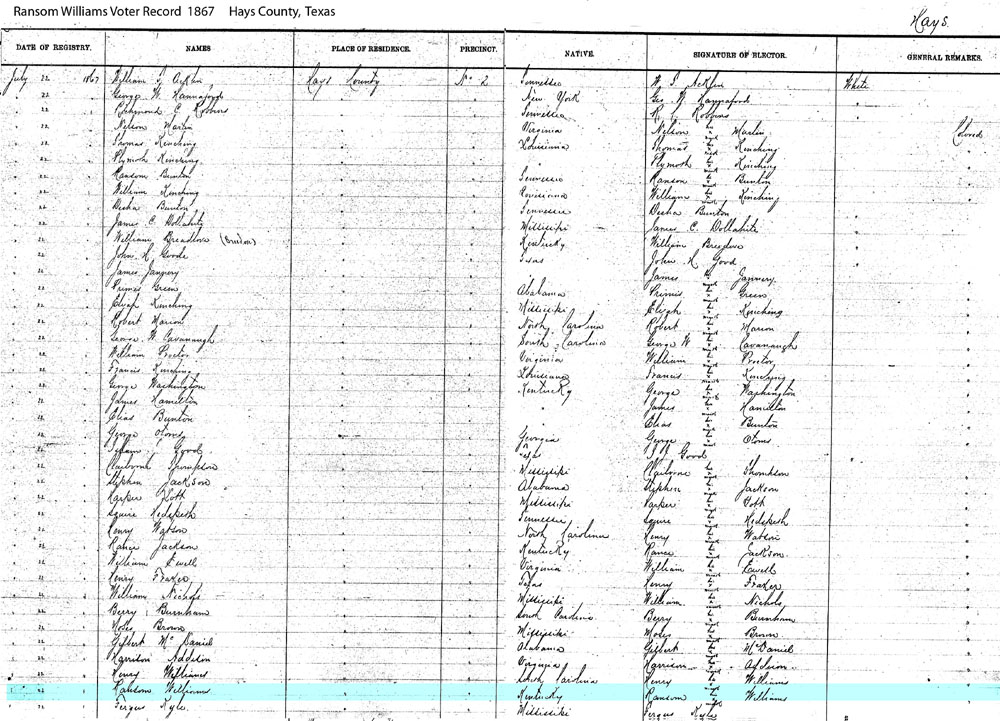 Ransom Williams Voter Record 1867 Hays County, Texas
Hays.
DATE OF REGISTRY. NAMES PLACE OF RESIDENCE. PRECINCT. NATIVE. SIGNATURE OF ELECTOR. GENERAL REMARKS.
July 22 1867 William Acklin Hays County No 2 Tennessee W Acklin White
22 George W Hannaford New York Geo W Hannaford
22 Richmond C Robbins Tennessee R C Robbins
22 Nelson Martin Virginia Nelson Martin Colored
22 Thomas Kinching Louisiana Thomas Kinching
22 Plymoth Kinching Plymoth Kinching
22 Ransom Bunton Tennessee Ranson Bunton
22 William Kinching William Kinching
22 Desha Bunton Tennessee Desha Bunton
22 James C. Dollahite Missisipi James C. Dollahite
22 William Breedlove Kentucky William
22 John H. Goode Texas John H Good
22 James January James January
22 Primus Green Alabama Primus Green
22 Elijah Kinching Missisipi Elijah Kinching
22 Robert Marion North Carolina Robert Marion
22 George W. Cavanaugh South Carolina George W Cavanaugh
22 William Proctor Virginia William Proctor
22 Francis Kinching Louisiana Francis Kinching
22 George Washington Kentucky George Washington
22 James Hamilton " James Hamilton
22 Elias Bunton Elias Bunton
22 George Georgia George
22 Good Texas Good
22 Claibourne Thompson Missisipi Claiborne Thompson
22 Stephen Jackson Alabama Stephen Jackson
22 Parker Missisipi Parker
22 Squire Hedspeth Tennessee Squire Hedspeth
22 Henry Watson North Carolina Henry Watson
22 Rance Jackson Kentucky Rance Jackson
22 William Ewell Virginia William Ewell
22 Henry Frazer Texas Henry Frazer
22 William Nichols Missisipi William Nichols
22 Berry Burnham South Carolina Berry Burnham
22 Moses Brown Missisipi Moses Brown
22 Gilbert McDaniel Alabama Gilbert McDaniel
22 Harrison Addison Virginia Harrison Addison
22 Henry Williams South Carolina Henry Williams
22 Ransom Williams Kentucky Ransom Williams
22 Fergus Kyle Missisipi Fergus Kyle